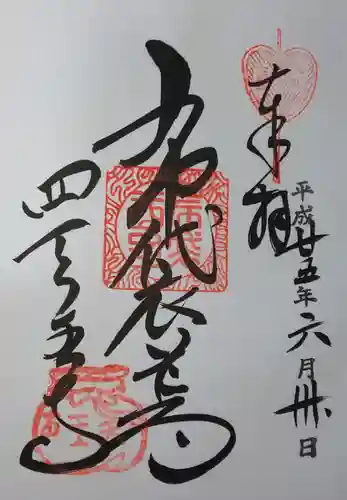 奉拝
平成廿五年六月卅日
布袋尊
四天王寺